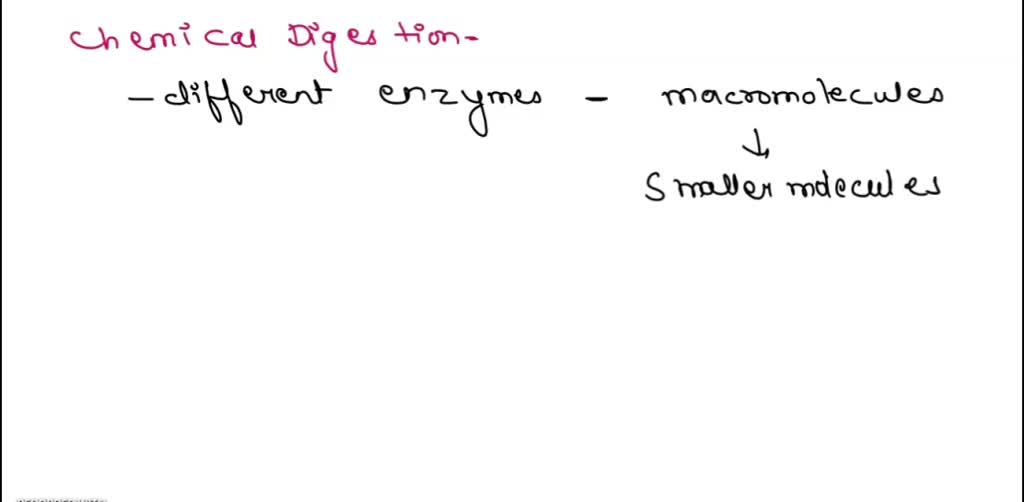 Chemical Digestion-
- different enzymes - macromolecules
↓
Smaller molecules